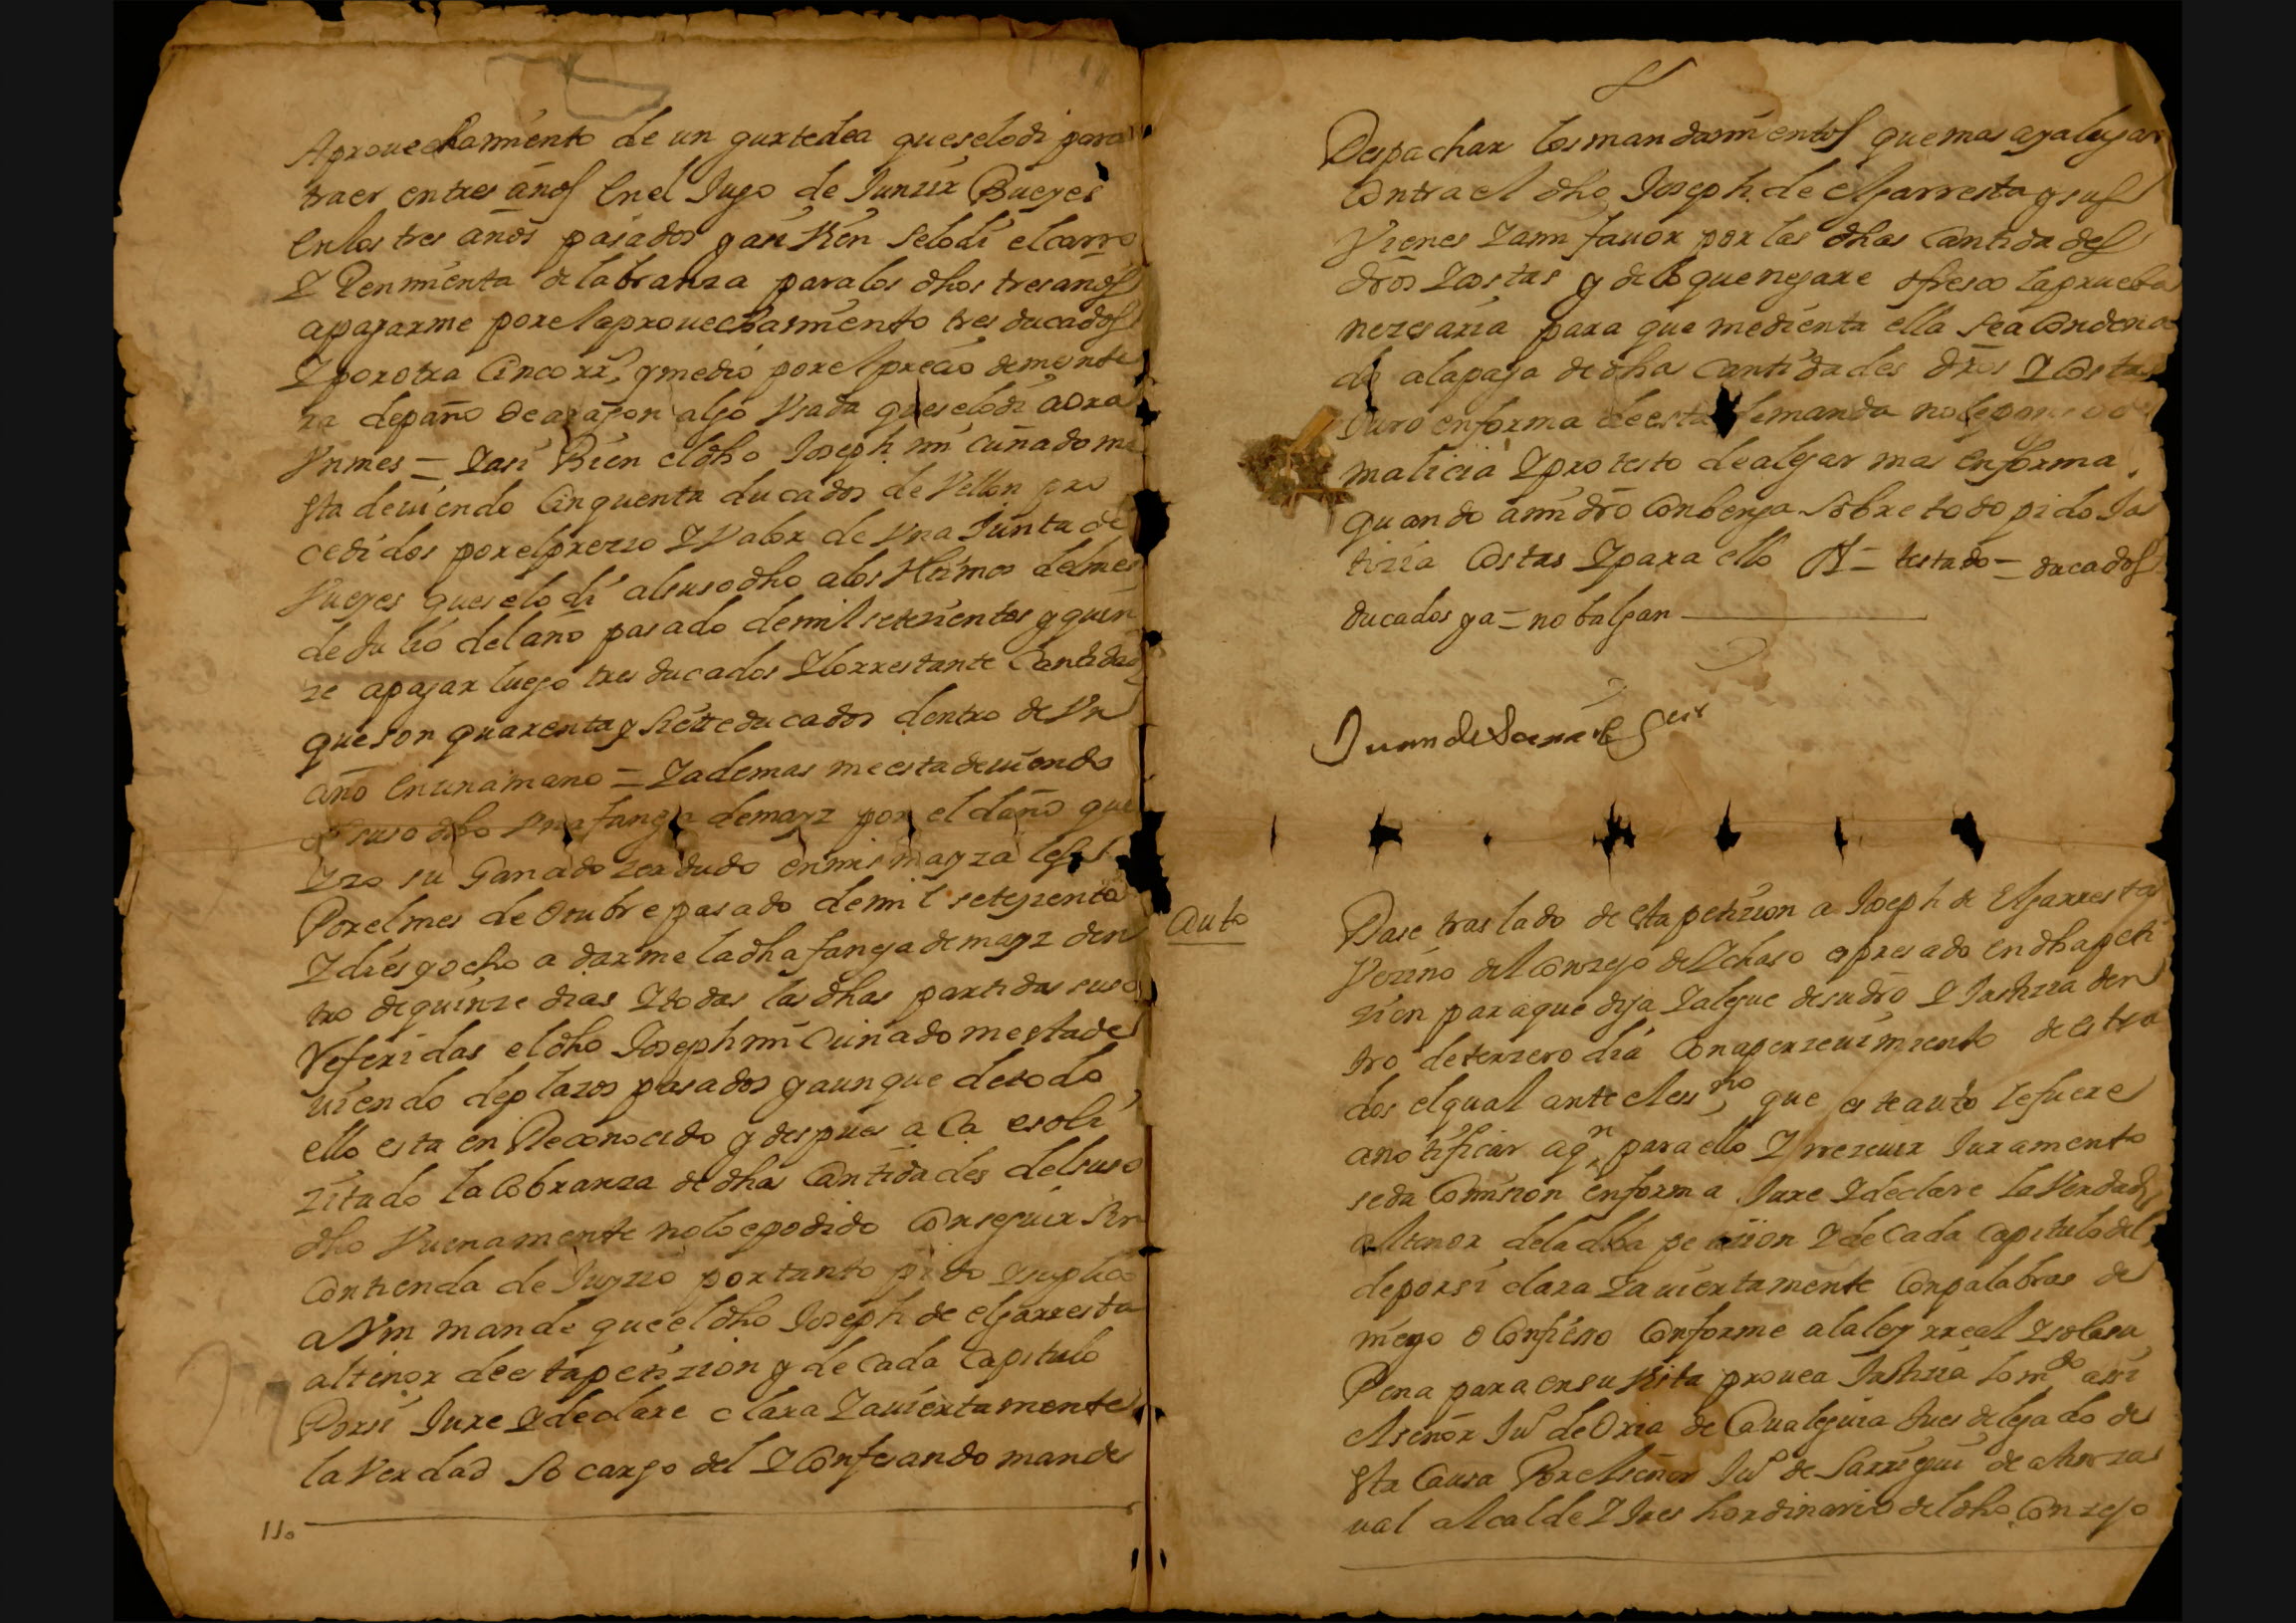 Aprouechamiento de un gurtedea queselodi para
traer entres años En el Jugo de Junzir Bueyes
Enlos tres años pasados y asi Bien selodi elcarro
Y Renmienta de labranza paralos dhos tresaños
apagarme porelaprouechasmiento tres ducados
Y porotra Cincorrs, ymedio porelprecio demonte
ra depaño dearagon algo Vsada queselodi aora
Vnmes = Yasi Bien eldho Joseph mi cuñadome
Sta deuiendo Cinquenta ducados de Vellon pro
cedidos porelprezio Y Valor de Vna Junta de
Vueyes queselodi alsusodho alos Vltimos delmes
de Julio delaño pasado demilsetezientos y quin
ze apagar luego tres ducados Ylorrestante Cantidad
queson quarentay siete ducados dentro de Vn
año Enunamano = Yademas meestadeuiendo
el susodho Vna fanega demayz por el daño que
Yzo su Ganado zerdudo enmi mayza
Porelmes de Otubre pasado demil setezientos
Y diesyocho a darme ladha fanega de mayz den
tro dequinze dias Ytodas lasdhas partidas suso
Referidas eldho Joseph mi Cuinado mestade
uiendo deplazos pasados yaunque detodo
ello esta en Reconocido y despues aCa esoli
zitado laCobranza dedhas Cantidades delsuso
dho Vuenamente noloepodido Conseguir Sin
Contienda de Juyzio portanto pido Ysuplico
aVm mande queeldho Joseph de elgarresta
altenor deestapetizion y de cada Capitulo
Porsi Jure Ydeclare clara Yauiertamente
laVerdad So cargo del YConfesando mande
Despachar losmandamientos quemas ayalugar
Contra el dho Joseph de elgarresta y sus
Vienes Yami fauor por las dhas Cantidades
dros Ycostas y deloquenegare ofresco laprueba
nezesaria para que medienta ella sea Condena
do alapaga dedha Cantidades dros Ycostas
Juro enforma deesta demanda no
malicia Yprotesto dealegar mas enforma
quando ami dro Conbenga Sobre todo pido Jus
tizia Costas Ypara ello Vª = testado = ducados
ducados ya = nobalgan
Juan de
Auto
Dase traslado de estapetizion a Joseph de Elgarresta
Vezino del Conzejo de Ychaso espresado endhapeti
zion paraque diga Yalegue desudro Y Justizia den
tro deterzero dia Conaperzeuimiento deestra
dos elqual ante elessno que este auto lefuere
anotificar aqn paraello Y rrezeuir Juramento
seda Comision enforma Jure Ydeclare laVerdad
altenor deladha petizion Ydecada capitulodel
deporsi clara Yauiertamente Conpalabras de
niego o Confieso Conforme alaley rreal Ysolasu
Pena paraensu Vista prouea Justizia lomdo asi
elseñor Ju de Oria de Cualeguia Jues delegado de
Sta Causa Porelseñor Ju de Sarregui de
ual alcalde YJues hordinario deldho Conzejo
110